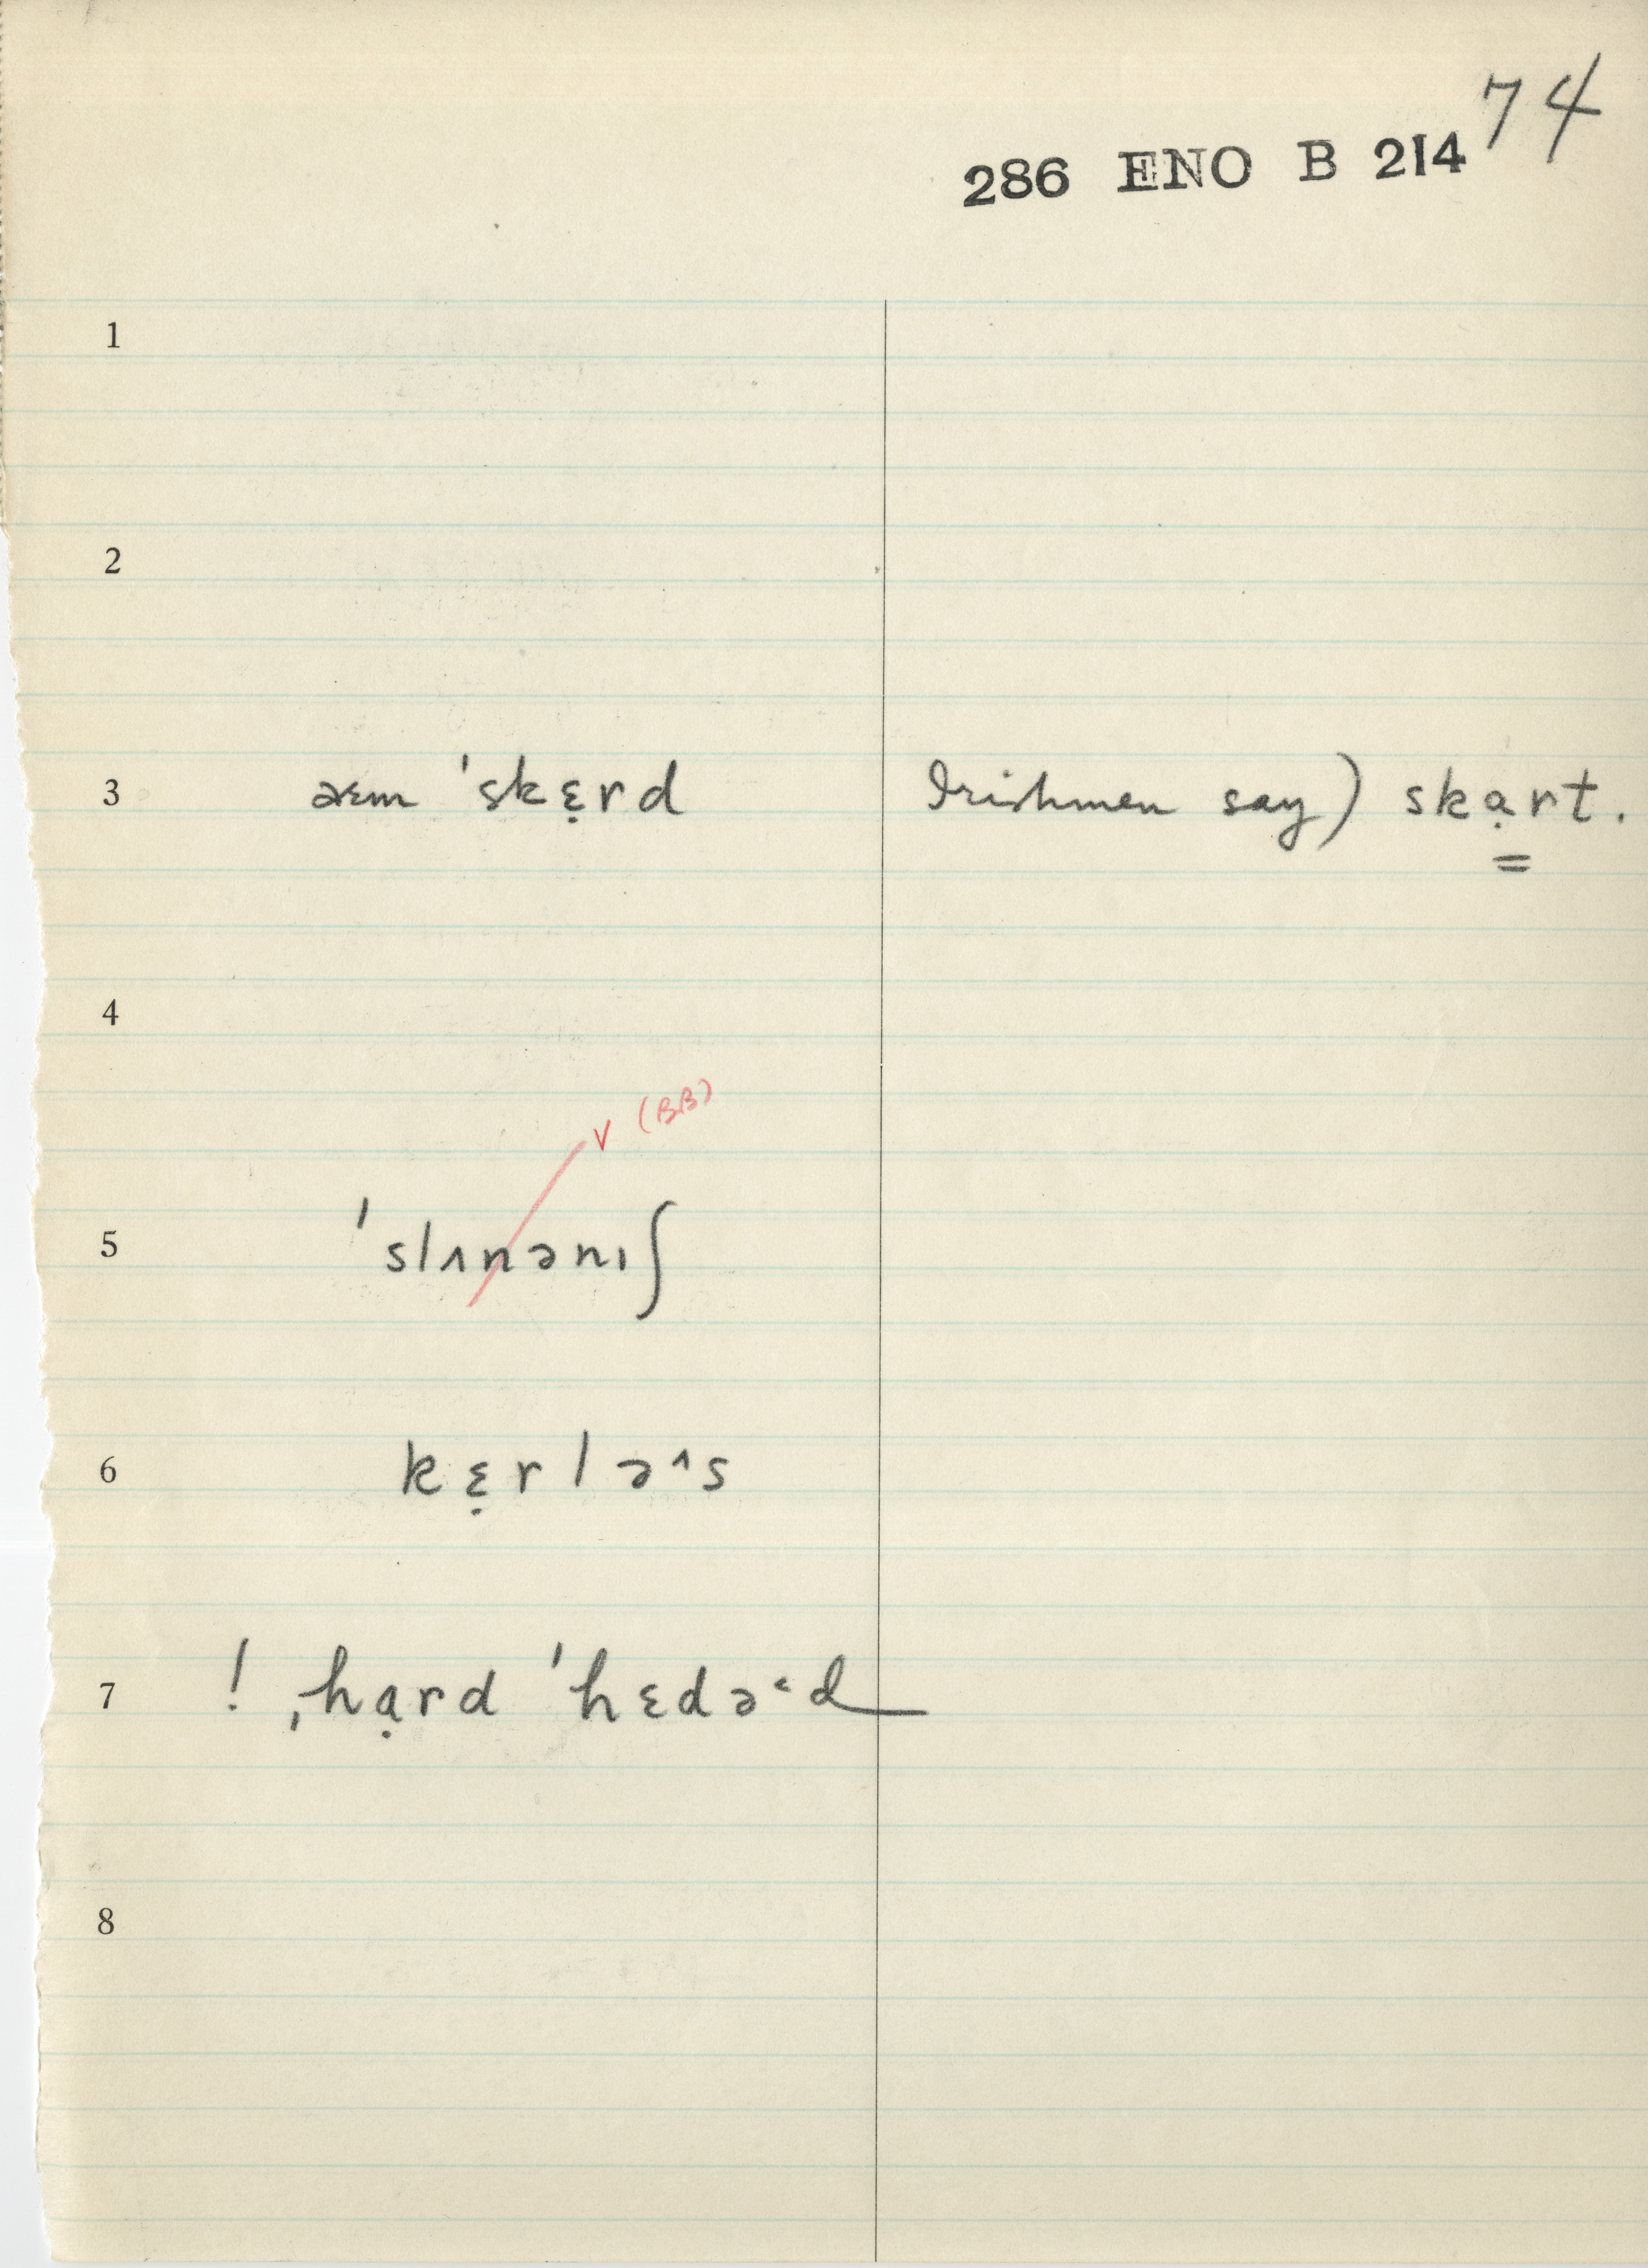 74
286 ENO B 214
1
2
3 aɛm ˈskɛ̣rd Irishmen say) skạrt.
4
v (BB)
5 ˈslʌnənıʃ
6 kɛ̣rlə^s
7 ! ˌhạrd ˈhɛdə˂d
8